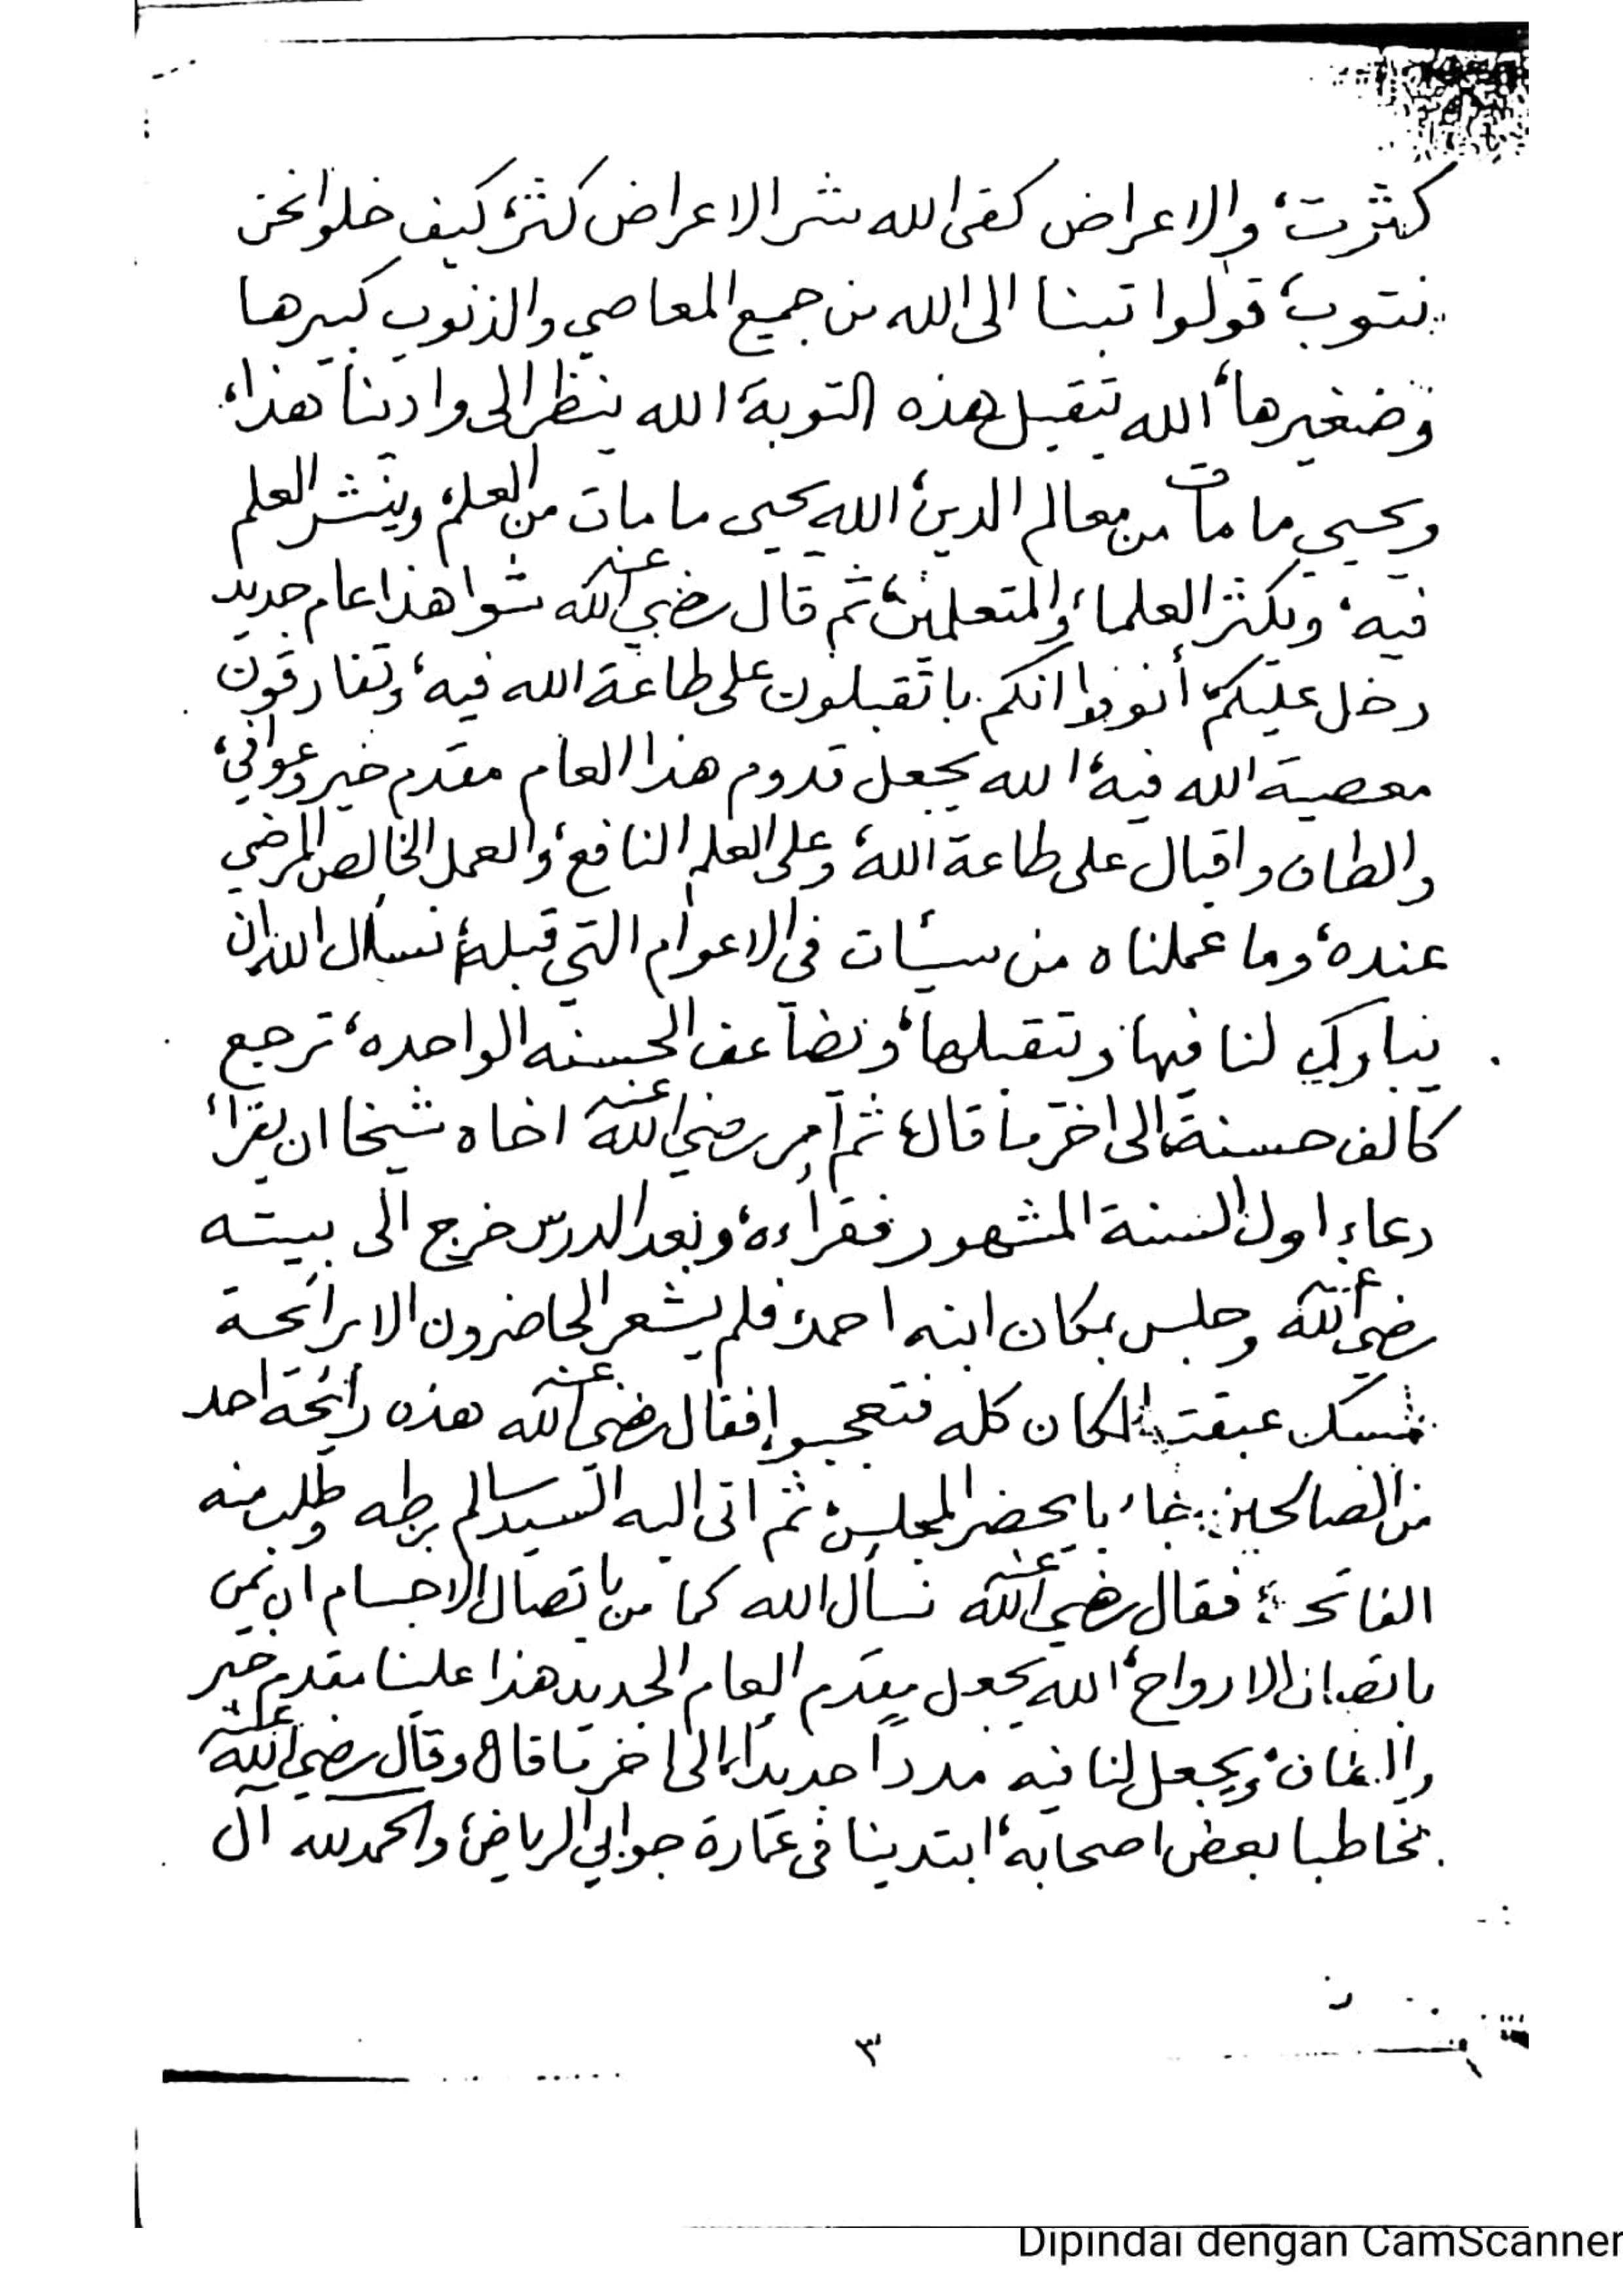 كثرت، والاعراض كفى الله شر الاعراض كثرة كيف خلوا نحن
نتوب، قولوا تبنا الى الله من جميع المعاصي والذنوب كبيرها
وصغيرها، الله يتقبل هذه التوبة، الله ينظر الى وادينا هذا،
ويحيي ما مات من معالم الدين، الله يحيي ما مات من العلم، وينشر العلم
فيه، ويكثر العلماء والمتعلمين، ثم قال رضي الله عنه شوا هذا عام جديد
دخل عليكم انووا انكم با تقبلون على طاعة الله فيه، وتفارقون
معصية الله فيه، الله يجعل قدوم هذا العام مقدم خير وعوافي،
والطاف واقبال على طاعة الله، وعلى العلم النافع، والعمل الخالص المرضي
عنده، وما عملناه من سيئات في الاعوام التي قبله، نسأل الله ان
يبارك لنا فيها وتتقبلها، وتضاعف الحسنه الواحده، ترجع
كالف حسنة، الى اخر ما قال، ثم أمر رضي الله عنه اخاه شيخا ان يقرأ،
دعاء اول السنة المشهور فقراءه، وبعد الدرس خرج الى بيته
رضي الله عنه وجلس بمكان ابنه احمد، فلم يشعر الحاضرون الا برائحة
مسك عبقت المكان كله فتعجبوا، فقال رضي الله عنه هذه رائحة احد
من الصالحين جاء بايحضر المجلس، ثم اتى اليه السيد سالم بن طه وطلب منه
الفاتحة، فقال رضي الله عنه نسأل الله كما من باتصال الاجسام ان يمن
باتصال الارواح، الله يجعل مقدم العام الجديد هذا علينا مقدم خير
ويجعل لنا فيه مددا جديدا، الى اخر ما قال، وقال رضي الله عنه
مخاطبا بعض اصحابه، ابتدينا في عمارة جوابي الرياض، والحمد لله آل
٣
Dipindai dengan CamScanner